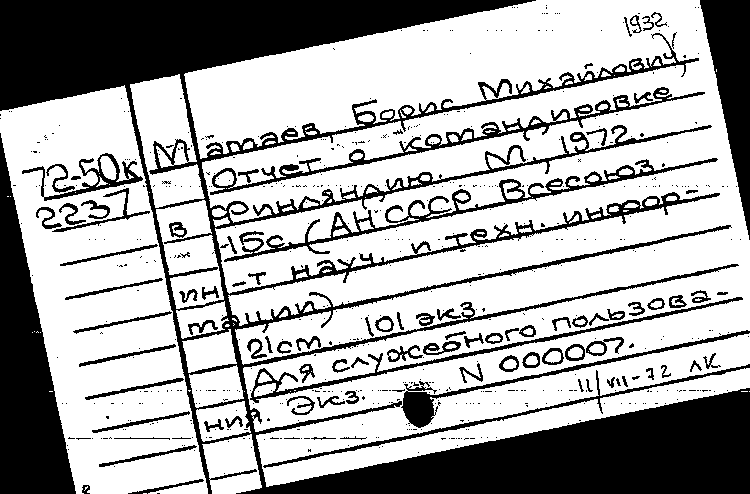 1932
72-50к
2237
Матаев, Борис Михайлович.
Отчет о командировке
в Финляндию. М., 1972.
15с. (АН СССР. Всесоюз.
ин-т науч. и техн. инфор-
мации)
21см. 101 экз.
Для служебного пользова-
ния. Экз. N 000007.
11/VII-72 ЛК